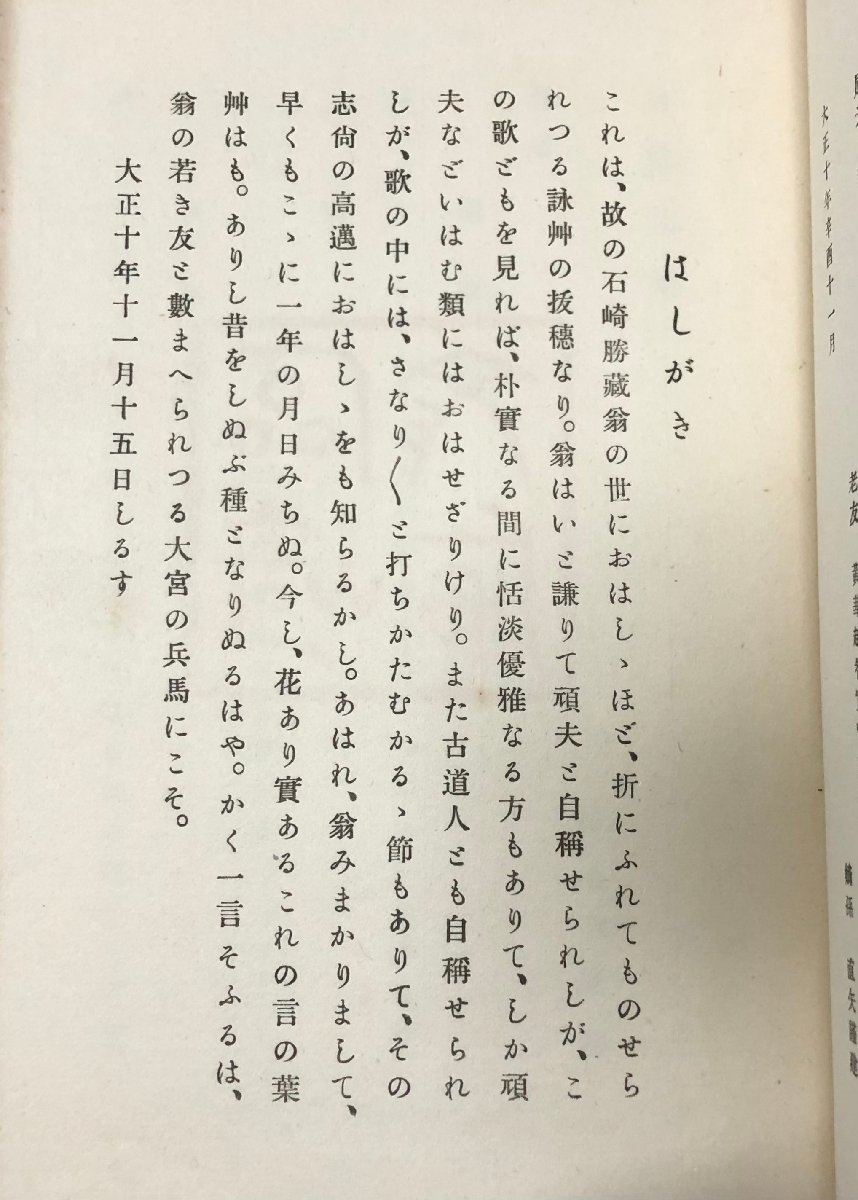 大正十年辛酉十一月
老友
はしがき
これは、故の石崎勝藏翁の世におはしゝほど、折にふれてものせら
れつる詠艸の拔穗なり。翁はいと謙りて頑夫と自稱せられしが、こ
の歌どもを見れば、朴實なる間に恬淡優雅なる方もありて、しか頑
夫などいはむ類にはおはせざりけり。また古道人とも自稱せられ
しが、歌の中には、さなり〱と打ちかたむかるゝ節もありて、その
志尙の高邁におはしゝをも知らるかし。あはれ、翁みまかりまして、
早くもこゝに一年の月日みちぬ。今し、花あり實あるこれの言の葉
艸はも。ありし昔をしぬぶ種となりぬるはや。かく一言そふるは、
翁の若き友と數まへられつる大宮の兵馬にこそ。
大正十年十一月十五日しるす